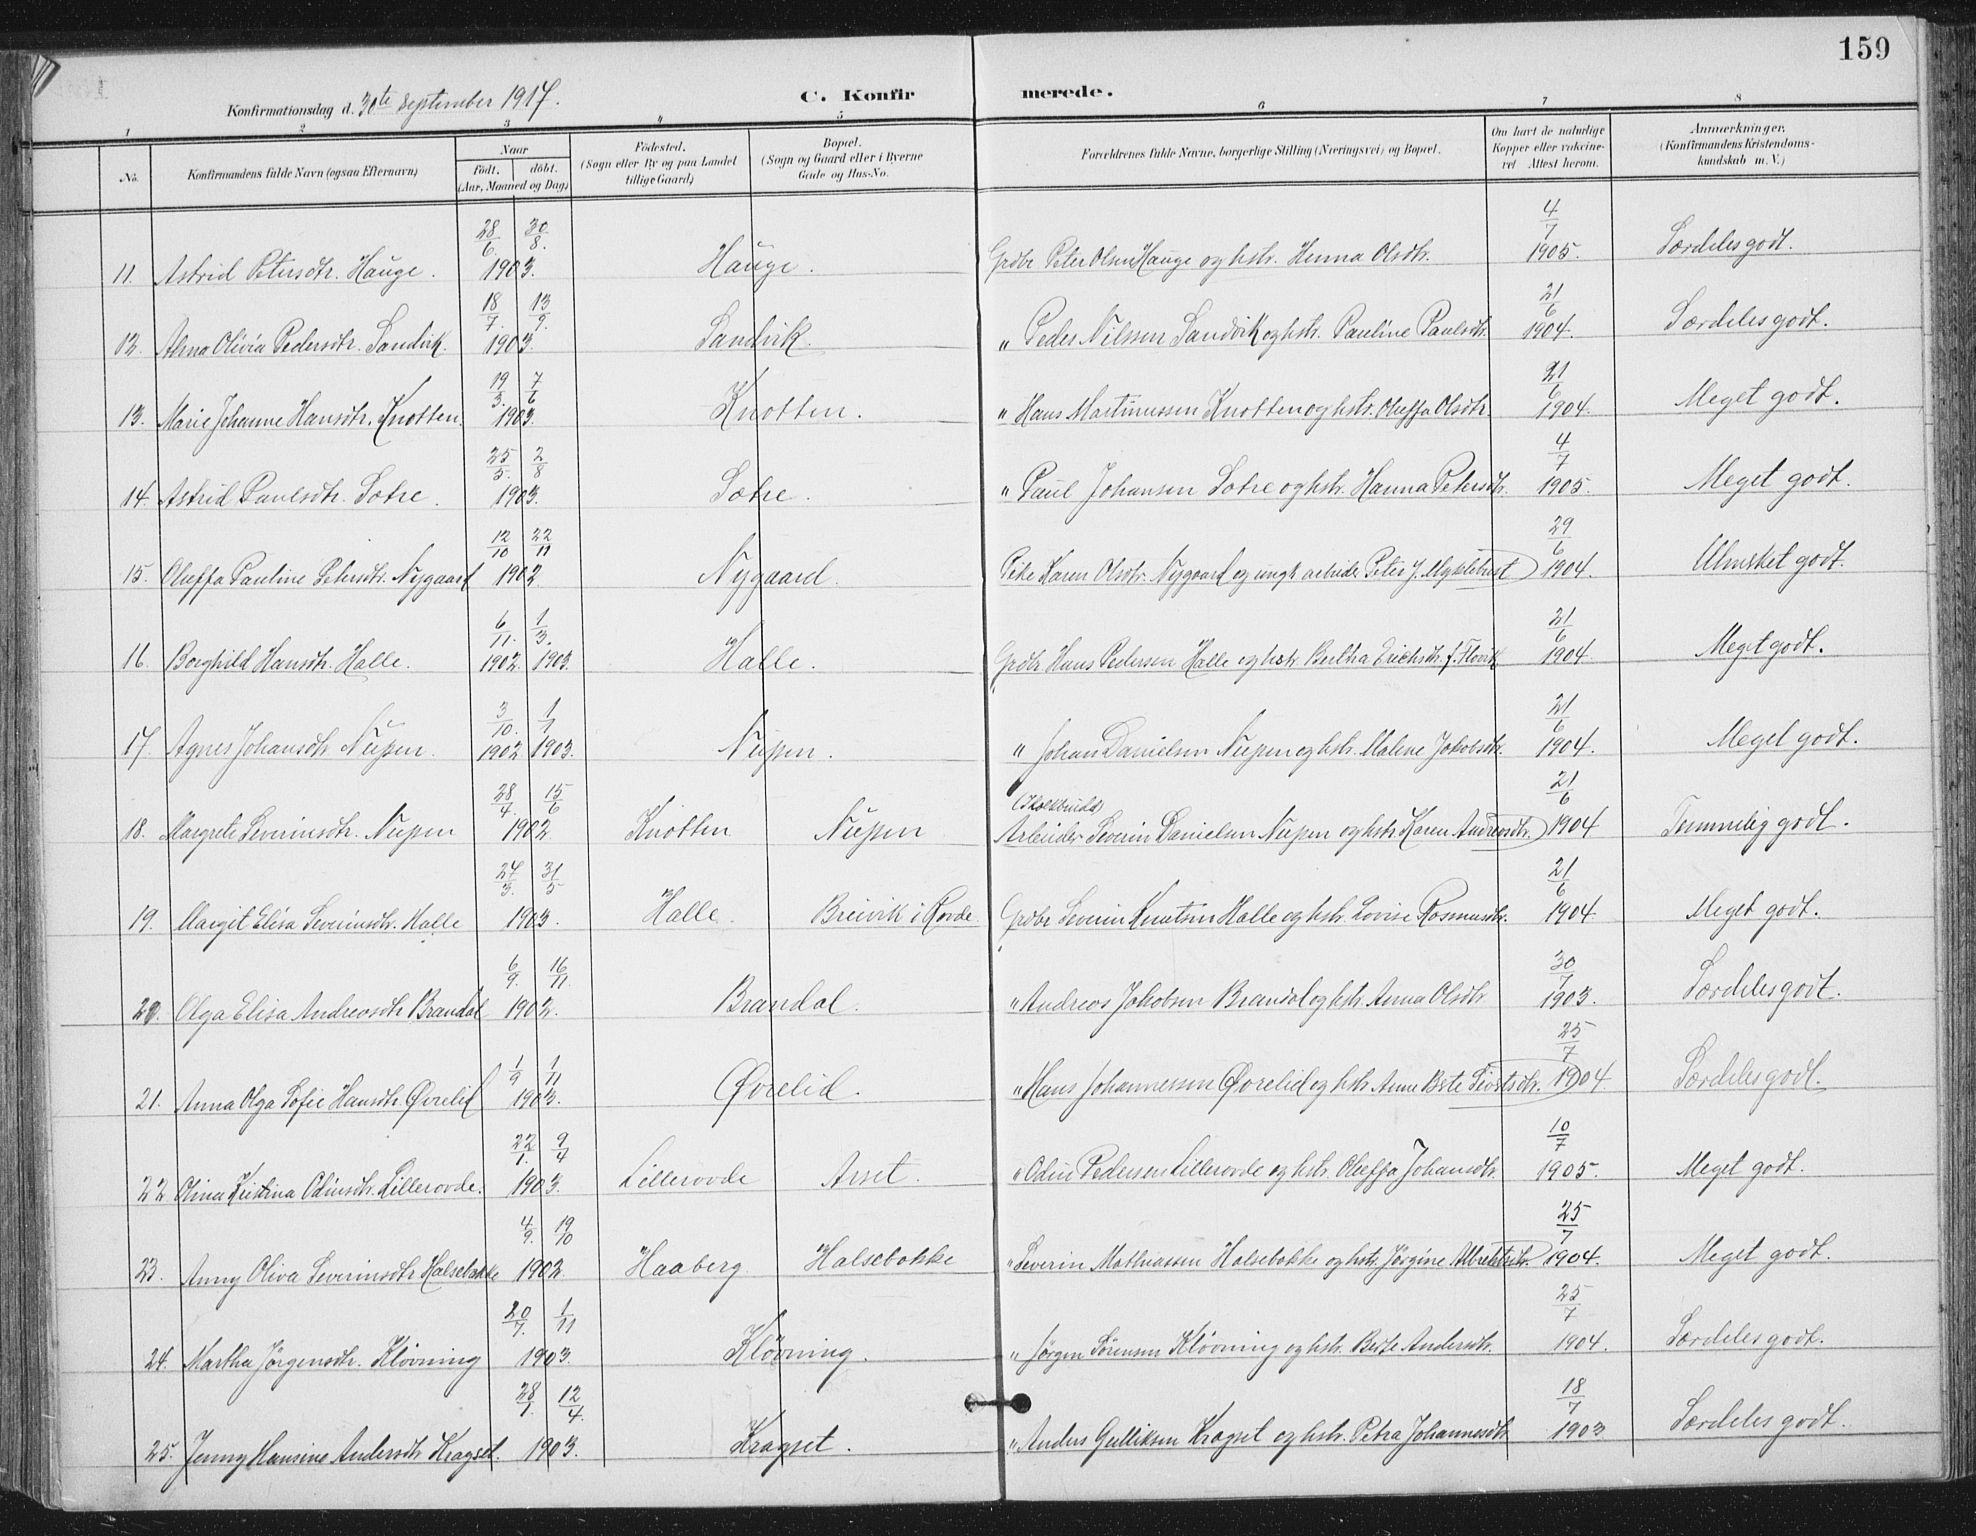 159
Konfirmationsdag d. 30te September 1917.
C. Konfirmerede.
1 2 3 4 5 6 7 8
No.
Konfirmandens fulde Navn (ogsaa Efternavn)
Naar
Födt. döbt.
(Aar, Maaned og Dag)
Födested.
(Sogn eller By og paa Landet
tillige Gaard)
Bopæl.
(Sogn og Gaard eller i Byerne
Gade og Hus-No.
Forældrenes fulde Navne, borgerlige Stilling (Næringsvei) og Bopæl.
Om havt de naturlige
Kopper eller vakcine-
ret Attest herom.
Anmærkninger.
(Konfirmandens Kristendoms-
kundskab m. V.)
11. Astrid Petersdtr. Hauge. 28/6 30/8. 1903. Hauge. Grdbr Peter Olsen Hauge og hstr. Henna Olsdtr. 4/7 1905. Særdeles godt.
12. Alma Olivia Pedersdtr. Sandvik. 18/7. 13/9. 1903. Sandvik. " Peder Nilssen Sandvik og hstr. Pauline Paulsdtr. 21/6 1904. Særdeles godt.
13. Marie Johanne Hansdtr. Knotten. 19/3. 7/6 1903. Knotten. " Hans Martinussen Knotten og hstr. Oluffa Olsdtr. 21/6 1904. Meget godt.
14. Astrid Paulsdtr. Sætre. 25/5. 2/8 1903. Sætre. " Paul Johansen Sætre og hstr. Hanna Petersdtr. 4/7 1905. Meget godt.
15. Oluffa Pauline Petersdtr. Nygaard 12/10 22/11 1902. Nygaard. Pike Karen Olsdtr. Nygaard og ungk. arbeider Peter J. Myklebust 29/6 1904. Utmerket godt.
16. Borghild Hansdtr. Halle. 6/11. 1902. 1/3. 1903. Halle. Grdbr Hans Pedersen Halle og hstr. Bertha Erichsdtr. f. Flovik 21/6 1904. Meget godt.
17. Agnes Johansdtr. Nupen. 3/10. 1902. 1/1 1903. Nupen. " Johan Danielsen Nupen og hstr. Malene Jakobsdtr. 21/6 1904. Meget godt.
18. Margrete Severinsdtr. Nupen 28/4. 15/6 1902 Knotten Nupen Arbeider Severin Danielsen Nupen og hstr Karen Andreasdtr. 21/6 1904 Temmelig godt.
19. Margit Elisa Severinsdtr. Halle 24/3. 31/5 1903. Halle. Breivik i Rovde. Grdbr Severin Knutsen Halle og hstr. Lovise Rasmusdtr. 21/6 1904. Meget godt.
20. Olga Elisa Andreasdtr Brandal 6/9. 16/11. 1902. Brandal. " Andreas Jakobsen Brandal og hstr. Anna Olsdtr 30/7 1903. Særdeles godt.
21. Anna Olga Sofie Hansdtr. Øvrelid 1/9 1/11 1903. Øvrelid. " Hans Johannessen Øvrelid og hstr. Anne Berte Sivertsdtr. 25/7 1904 Særdeles godt.
22. Olina Kristina Odinsdtr. Lillerovde. 22/1. 9/4 1903. Lillerovde Arset. " Odin Pedersen Lillerovde og hstr. Oluffa Johansdtr. 10/7 1905. Meget godt.
23. Anny Oliva Severinsdtr Halsebakke 4/9. 19/10 1902. Haaberg Halsebakke " Severin Mathiassen Halsebakke og hstr. Jørgine Albrektsdtr. 25/7 1904. Meget godt.
24. Martha Jörgensdtr. Klövning 20/7. 1/11 1903. Klövning. " Jörgen Sörensen Klövning og hstr. Berte Andersdtr. 25/7 1904. Særdeles godt.
25. Jenny Hansine Andersdtr Kragset. 28/1. 12/4. 1903. Kragset. " Anders Gulliksen Kragset og hstr. Petra Johannesdtr. 18/7 1903 Særdeles godt.